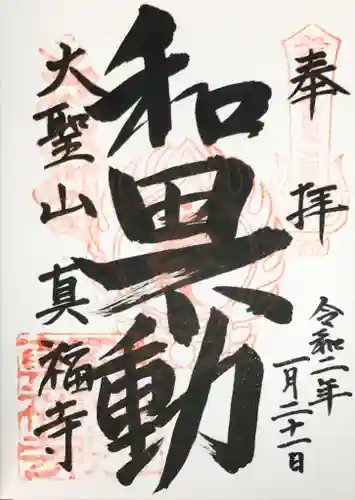 奉拝
令和二年
一月二十一日
和異動
大聖山真福寺